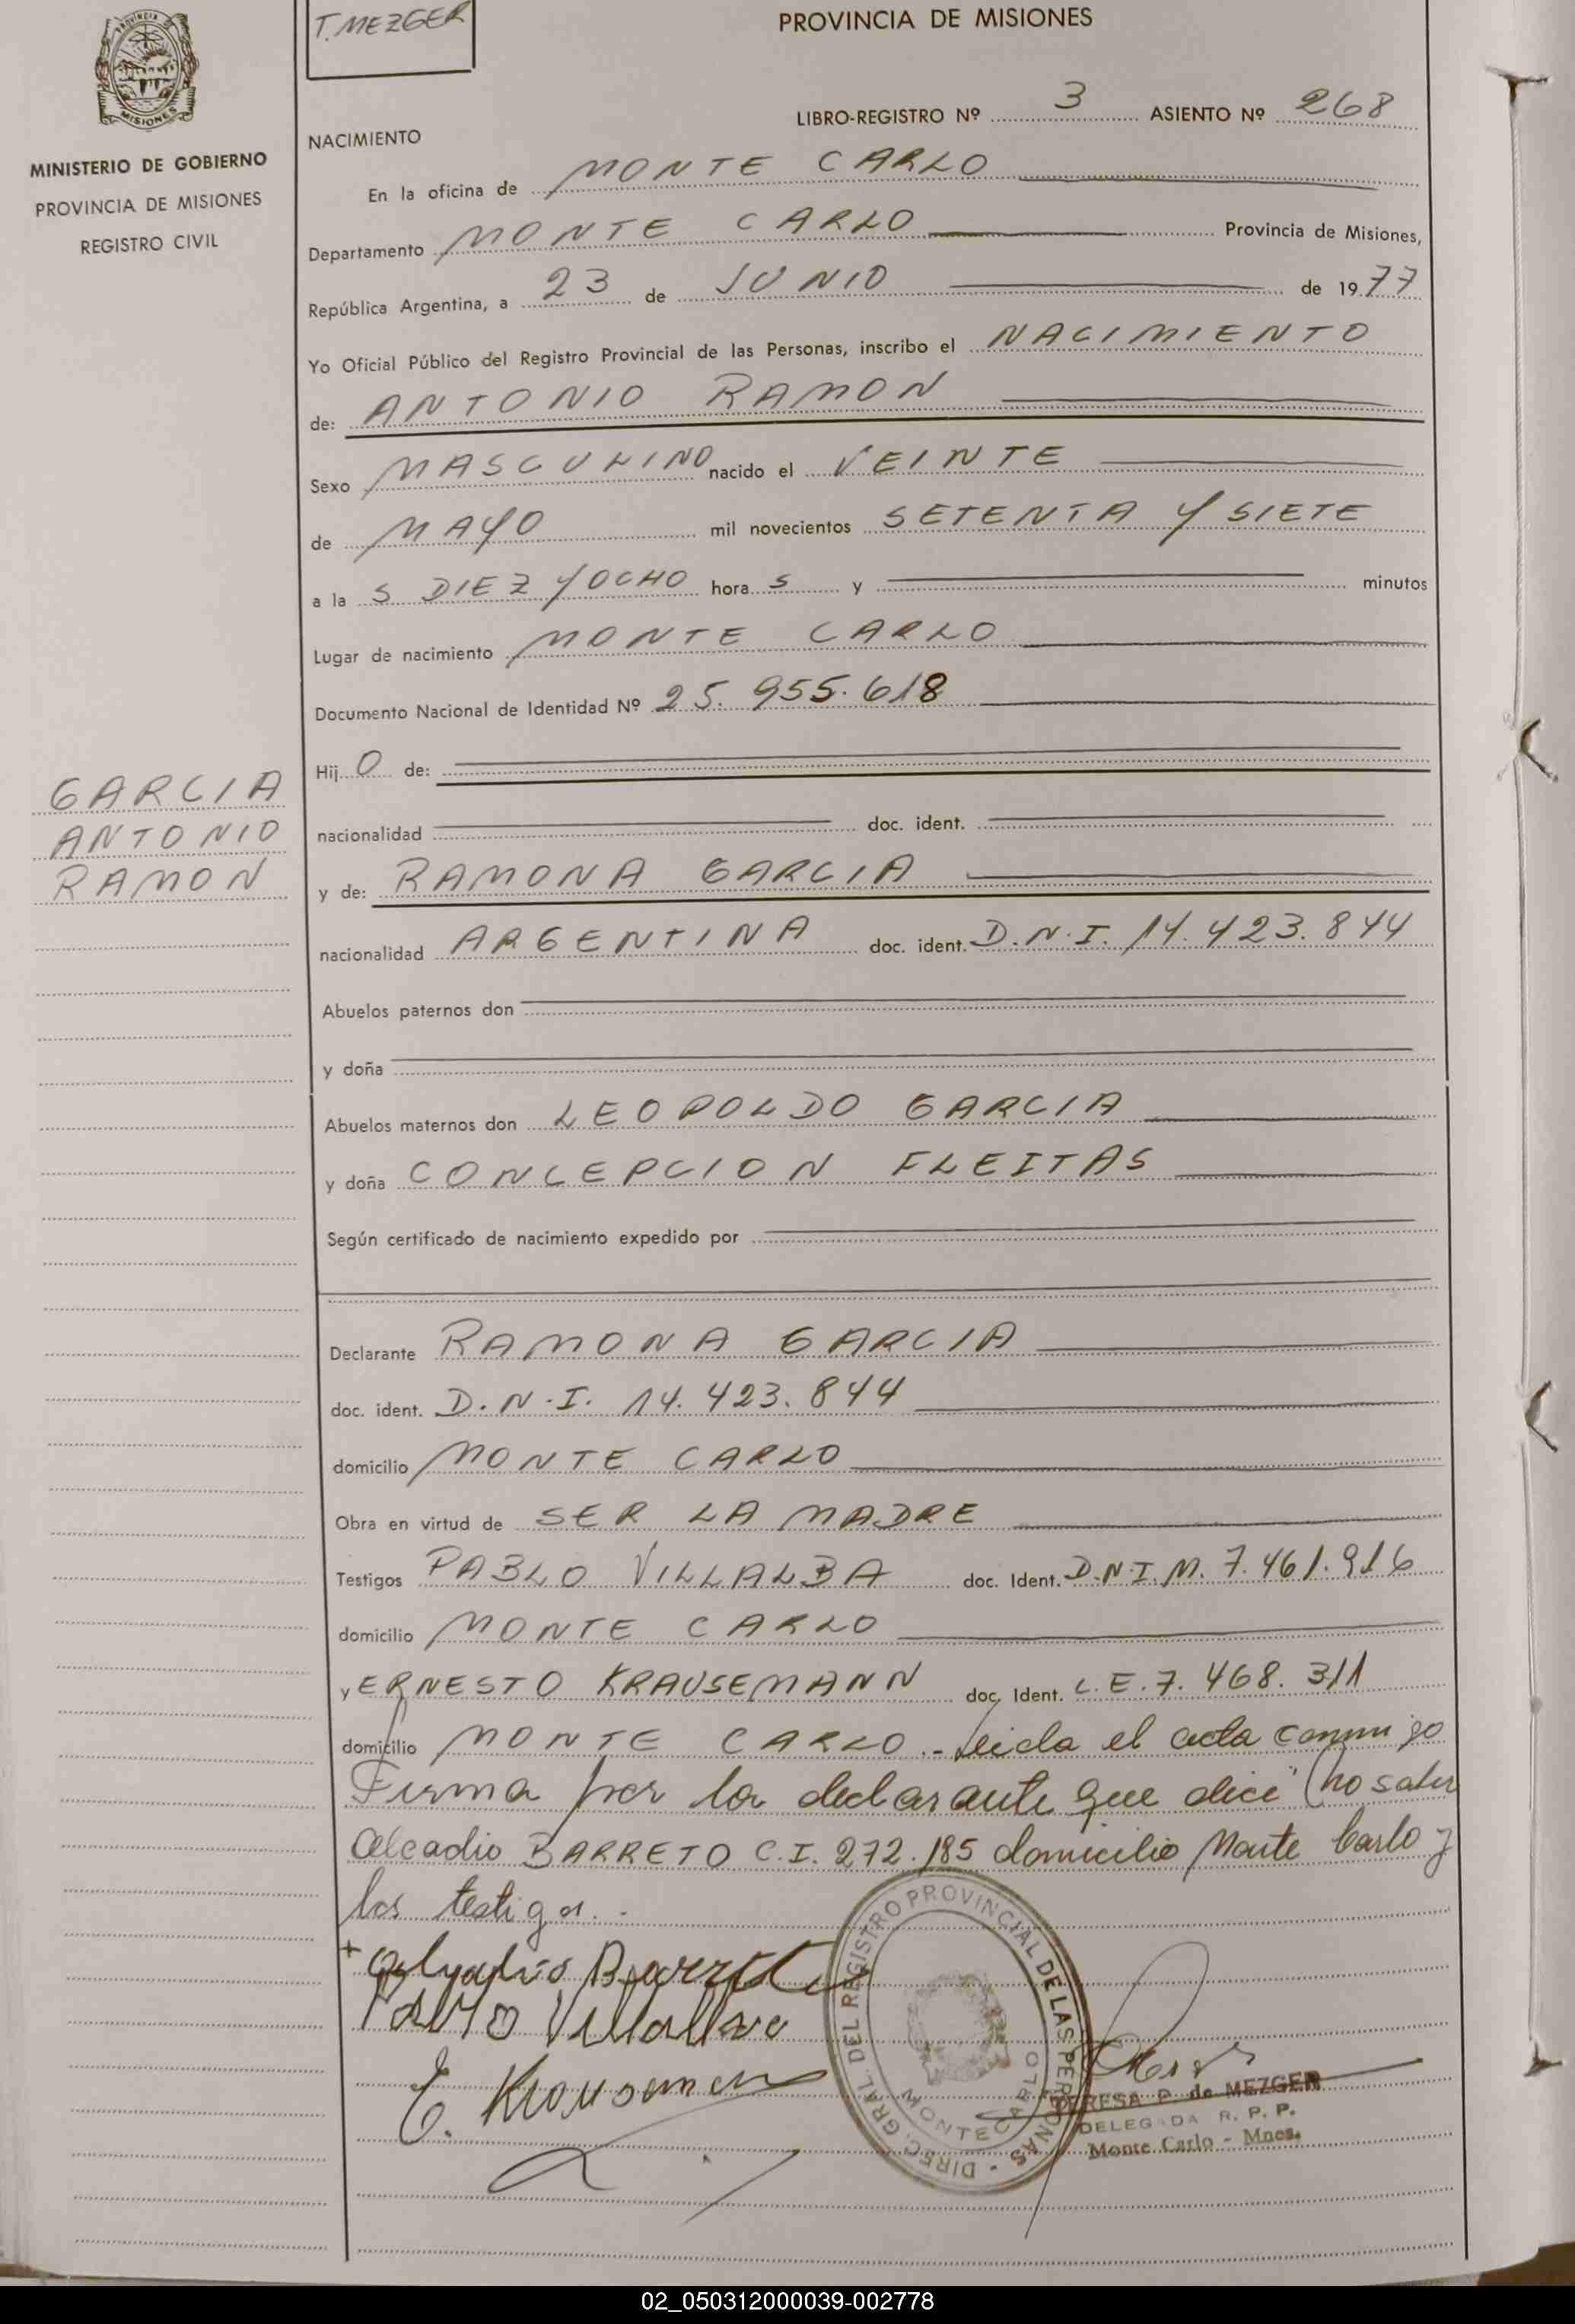 T. MEZGER
PROVINCIA DE MISIONES
PROVINCIA DE
MISIONES
MINISTERIO DE GOBIERNO
PROVINCIA DE MISIONES
REGISTRO CIVIL
LIBRO-REGISTRO Nº 3 ASIENTO Nº 268
NACIMIENTO
En la oficina de MONTE CARLO
Departamento MONTE CARLO Provincia de Misiones,
República Argentina, a 23 de JUNIO de 1977
Yo Oficial Público del Registro Provincial de las Personas, inscribo el NACIMIENTO
de: ANTONIO RAMON
Sexo MASCULINO nacido el VEINTE
de MAYO mil novecientos SETENTA Y SIETE
a la S DIEZ Y OCHO hora S y minutos
Lugar de nacimiento MONTE CARLO
Documento Nacional de Identidad Nº 25.955.618
Hij O de:
GARCIA
ANTONIO
RAMON
nacionalidad doc. ident.
y de: RAMONA GARCIA
nacionalidad ARGENTINA doc. ident. D.N.I. 14.423.844
Abuelos paternos don
y doña
Abuelos maternos don LEOPOLDO GARCIA
y doña CONCEPCION FLEITAS
Según certificado de nacimiento expedido por
Declarante RAMONA GARCIA
doc. ident. D.N.I. 14.423.844
domicilio MONTE CARLO
Obra en virtud de SER LA MADRE
Testigos PABLO VILLALBA doc. Ident. D.N.I.M. 7.461.916
domicilio MONTE CARLO
y ERNESTO KRAUSEMANN doc. Ident. L.E. 7.468.311
domicilio MONTE CARLO.- Leida el acta conmigo
Firma por la declarante que dice no saber
Alcadio BARRETO C.I. 272.185 domicilio Monte Carlo y
los testigos.-
Barreto
Pablo Villalba
E. Krausemann
DIREC. GRAL. DEL REGISTRO PROVINCIAL DE LAS PERSONAS -
MONTECARLO
TERESA P. de MEZGER
DELEGADA R. P. P.
Monte Carlo - Mnes.
02_050312000039-002778